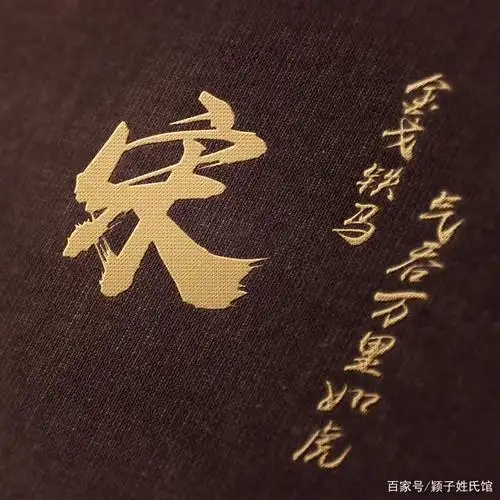 宋
金戈铁马
气吞万里如虎
百家号/颖子姓氏馆